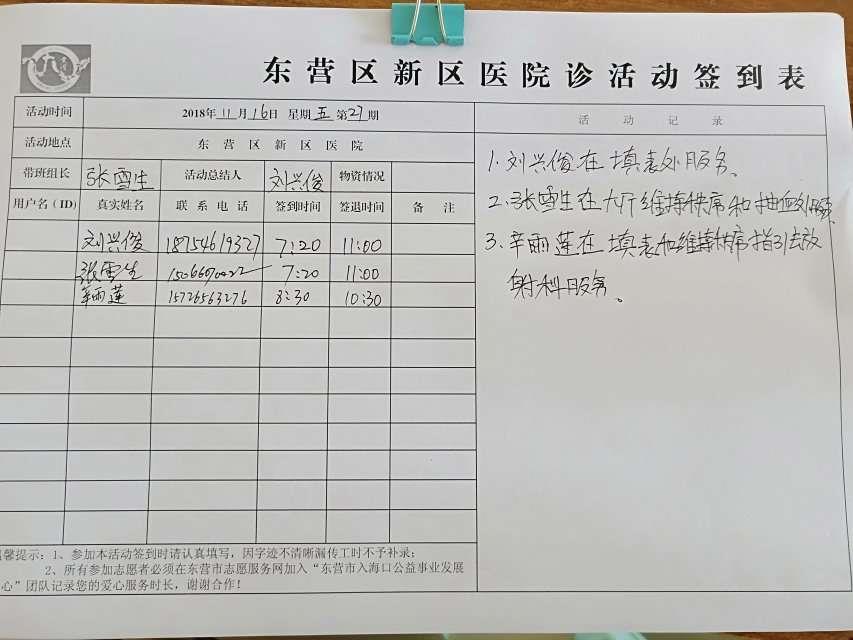 东营区新区医院诊活动签到表
活动时间 2018年11月16日 星期五 第27期
活动地点 东营区新区医院
带班组长 张雪生 活动总结人 刘兴俊 物资情况
用户名(ID) 真实姓名 联系电话 签到时间 签退时间 备注
刘兴俊 18754619327 7:20 11:00
张雪生 7:20 11:00
辛雨莲 15726563276 8:30 10:30
馨提示:1、参加本活动签到时请认真填写,因字迹不清晰漏传工时不予补录;
2、所有参加志愿者必须在东营市志愿服务网加入“东营市入海口公益事业发展
心”团队记录您的爱心服务时长,谢谢合作!
活动记录
1.刘兴俊在填表处服务。
2.张雪生在大厅维持秩序和抽血处服务
3.辛雨莲在填表和维持秩序指引去放
射科服务。